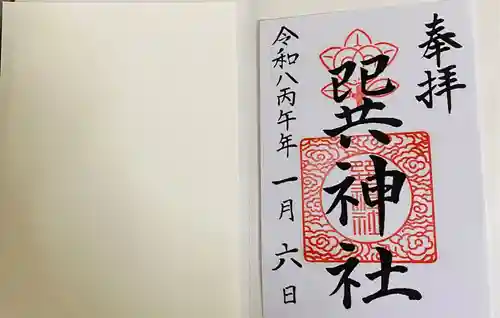 奉拝
巽神社
令和八丙午年 一月 六日